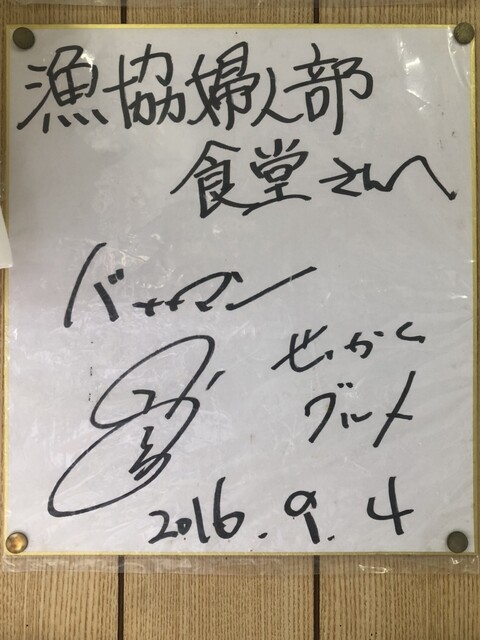 漁協婦人部
食堂さんへ
バナナマン
せっかく
グルメ
2016.9.4